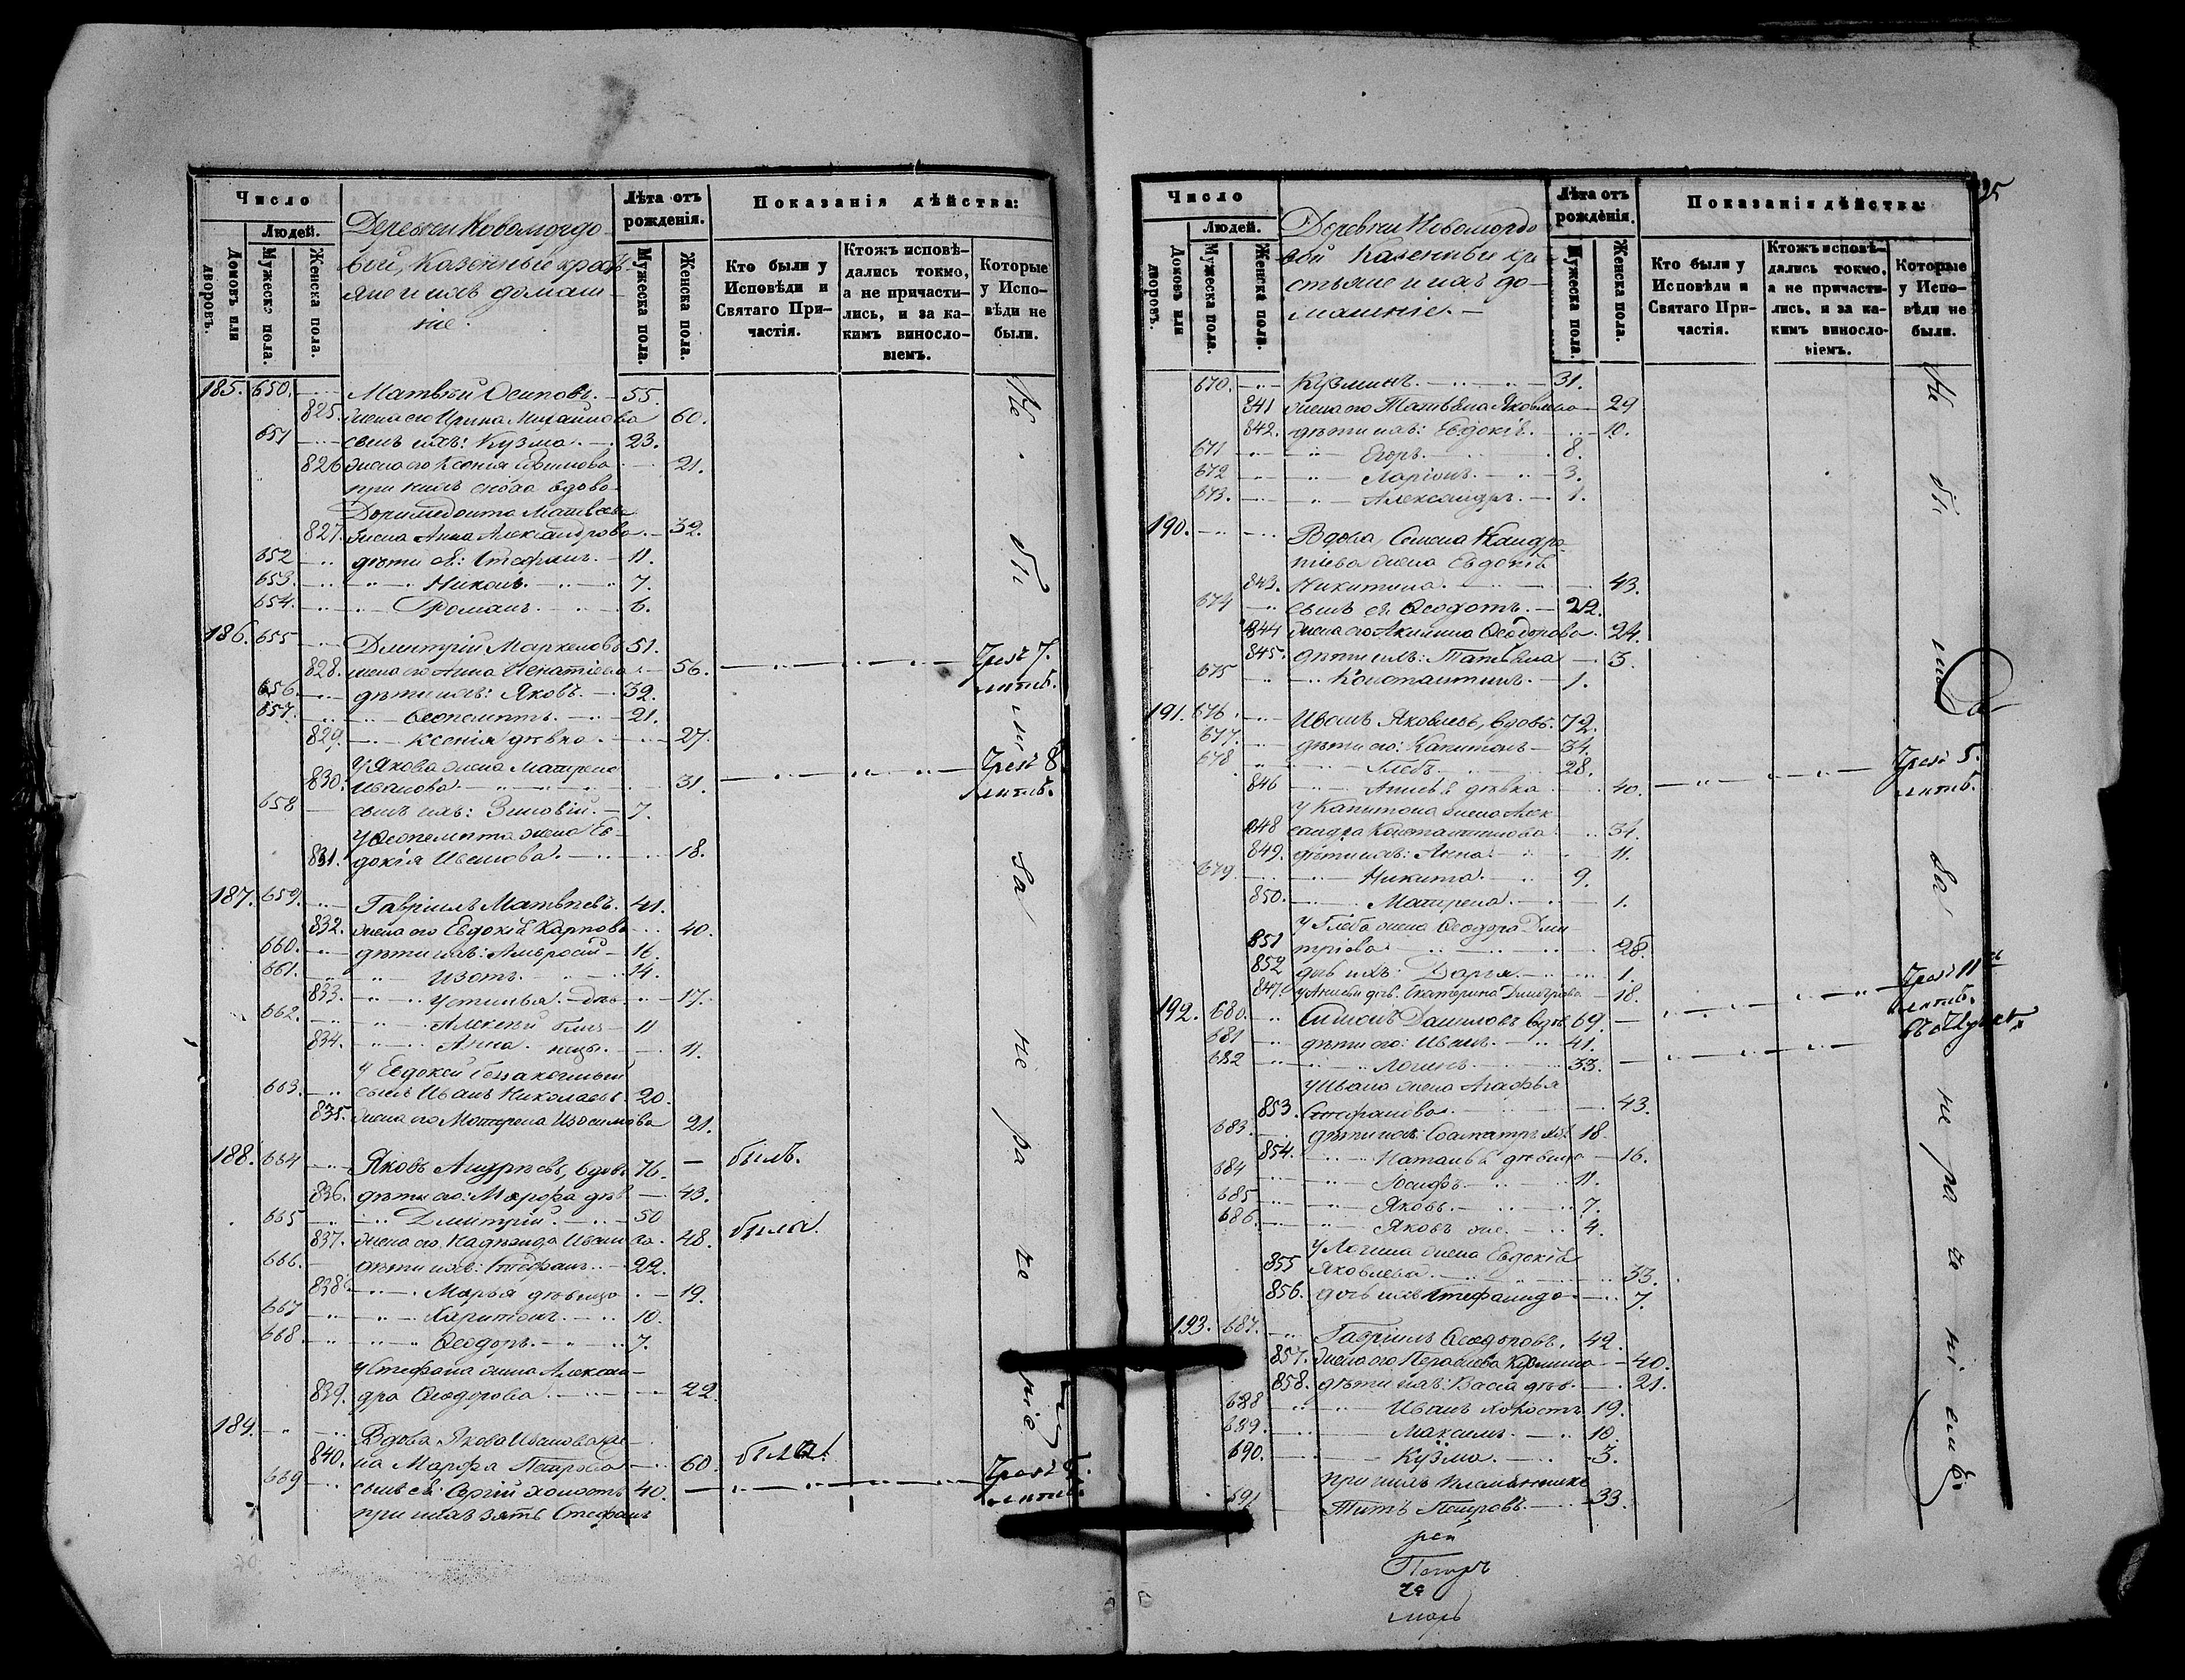 Число
Людей.
Домовъ или дворовъ.
Мужеска пола.
Женска пола.
Деревни Новомордо-
вой, Казенные крест-
яне и ихъ домаш-
ніе.
Лѣта отъ рожденія.
Мужеска пола.
Женска пола.
Показанія дѣйства:
Кто были у Исповѣди и Святаго Причастія.
Ктожъ исповѣдались токмо, а не причастились, и за какимъ винословіемъ.
Которые у Исповѣди не были.
185. 650. Матвѣй Осиповъ. 55.
825. жена его Ирина Михаилова 60.
651 сынъ ихъ: Кузма. 23.
826 жена его Ксенія 21.
при нихъ сноха вдова
Доримедонта Матвѣева
827. жена Анна Александрова. 32.
652 дѣти ея: Стефанъ. 11.
653. Никонъ. 7.
654. Романъ. 6.
186. 655 Дмитрій Маркеловъ 51.
828. жена его Анна Игнатіева 56. Чрезъ 7. лѣтъ.
656. дѣти ихъ: Яковъ. 32.
657. Ѳеопемптъ. 21.
829. Ксенія дѣвка 27.
У Якова жена Матрена
830. Иванова 31. Чрезъ 8 лѣтъ.
658 сынъ ихъ: Зиновій. 7.
У Ѳеопемпта жена Ев-
831. докія Иванова. 18.
187. 659. Гавріилъ Матвѣевъ. 41.
832. жена его Евдокія Карпова 40.
660. дѣти ихъ: Амвросій 16.
661. Изотъ. 14.
833. Устинья дѣв. 17.
662. Алексѣй близ- 11
834. Анна нецы. 11.
У Евдокіи беззаконный
663. сынъ Иванъ Николаевъ. 20.
835. жена его Матрена Изосимова 21.
188. 664 Яковъ Андреевъ, вдовъ 76. былъ.
836. дѣти его: Марфа дѣв 43.
665 Дмитрій. 50
837. жена его Надежда Иванова. 48. была.
666. дѣти ихъ: Стефанъ. 22.
838. Марья дѣвица 19.
667 Харитонъ. 10.
668. Ѳеодоръ. 7.
У Стефана жена Алексан-
839. дра Ѳеодорова. 22
189. Вдова Якова Иванова же-
840. на Марфа Петрова 60. была.
669 сынъ ея: Сергій холостъ 40. Чрезъ лѣтъ.
при нихъ зять Стефанъ
Не бы ли за не ра че ніе
25
Число
Людей.
Домовъ или дворовъ.
Мужеска пола.
Женска пола.
Деревни Новомордо
вой Казенные кре
стьяне и ихъ до-
машніе.
Лѣта отъ рожденія.
Мужеска пола.
Женска пола.
Показанія дѣйства:
Кто были у Исповѣди и Святаго Причастія.
Ктожъ исповѣдались токмо, а не причастились, и за какимъ винословіемъ.
Которые у Исповѣди не были.
670. Кузминъ. 31.
841 жена его Татьяна Яковлева 29
842. дѣти ихъ: Евдокія. 10.
671 Егоръ. 8.
672 Ларіонъ. 3.
673. Александръ. 1.
190. Вдова, Семена Кондра-
тіева жена Евдокія
843. Никитина. 43.
674 сынъ ея Ѳеодотъ. 22.
844 жена его Акилина Ѳеодорова. 24.
845. дѣти ихъ: Татьяна 3.
675 Константинъ. 1.
191. 676. Иванъ Яковлевъ, вдовъ. 72.
677. дѣти его: Капитонъ 34.
678 Глебъ 28.
846 Анисья дѣвка 40. Чрезъ 5. лѣтъ.
У Капитона жена Алек
848 сандра Константинова 34.
849. дѣти ихъ: Анна 11.
679 Никита 9.
850. Матрена 1.
У Глеба жена Ѳеодора Дми
851 тріева 28.
852 дочь ихъ: Дарья. 1.
847. У Анисьи доч. Екатерина Димитріева 18.
192. 680. Симеонъ Даниловъ вдовъ 69. Чрезъ 11ть лѣтъ.
681 дѣти его: Иванъ. 41.
682 Логинъ. 33.
У Ивана жена Агафья
853. Стефанова. 43.
683. дѣти ихъ: 18.
854. Наталья дѣвица 16.
684 Іосифъ 11.
685 Яковъ. 7.
686. Яковъ же. 4.
У Логина жена Евдокія
855 Яковлева. 33.
856. дочь ихъ Стефанида 7.
193. 687. Гавріилъ Ѳеодоровъ. 42.
857. жена его Кузмина 40.
858. дѣти ихъ: Васса дѣв. 21.
688 Иванъ холостъ 19.
689. Максимъ. 10.
690. Кузма. 3.
при нихъ племянникъ
691 Титъ Петровъ. 33.
Не бы ли за не ра че ні емъ
рей
Петръ